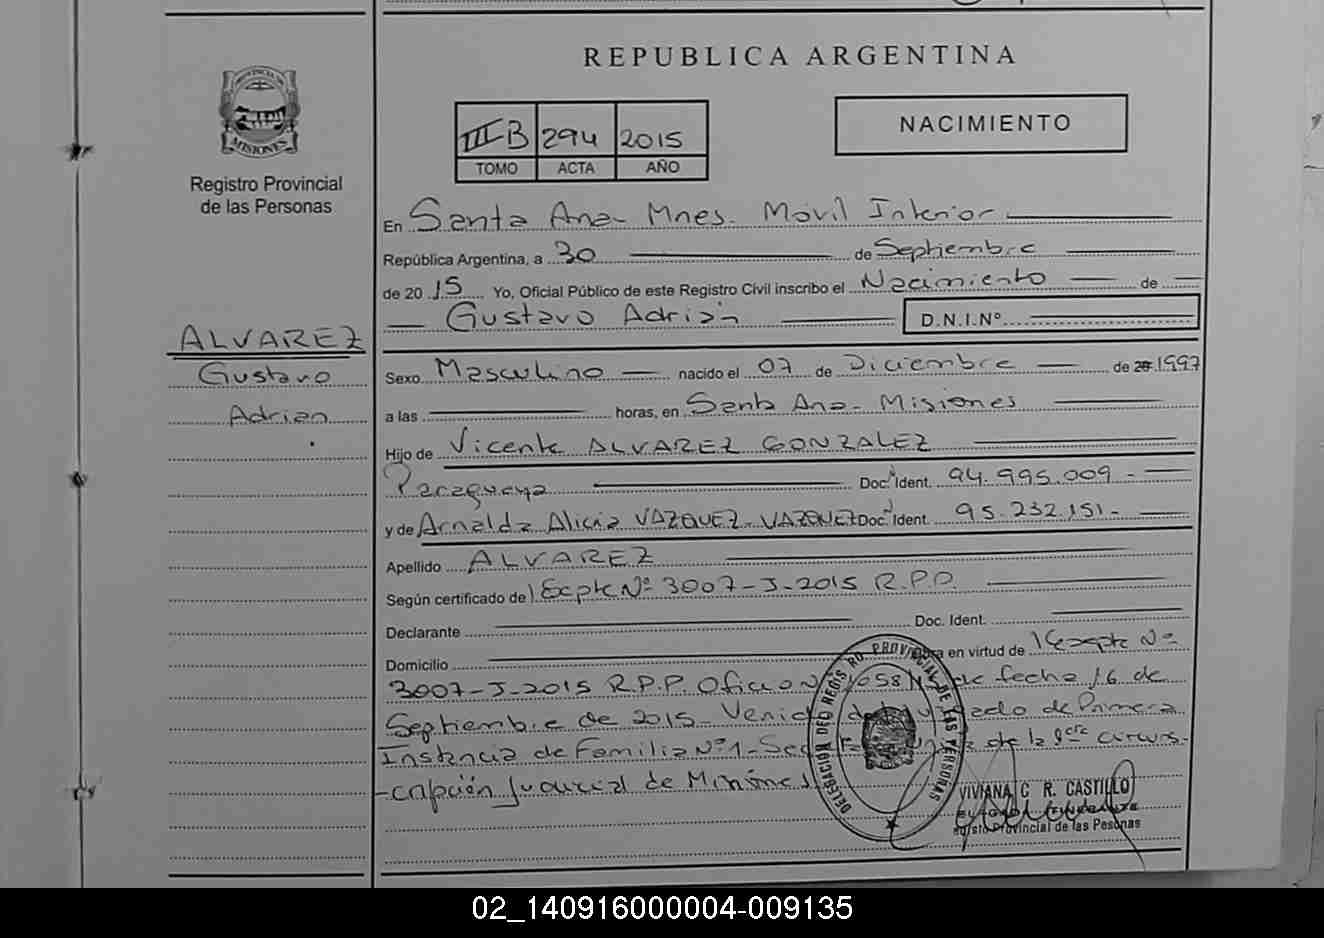 REPUBLICA ARGENTINA
PROVINCIA DE
MISIONES
Registro Provincial
de las Personas
III B 294 2015
TOMO ACTA AÑO
NACIMIENTO
En Santa Ana- Mnes. Móvil Interior
República Argentina, a 30 de Septiembre
de 2015 Yo, Oficial Público de este Registro Civil inscribo el Nacimiento de
Gustavo Adrián D.N.I.Nº
ALVAREZ
Gustavo
Adrian
Sexo Masculino nacido el 07 de Diciembre de 20 1997
a las horas, en Santa Ana- Misiones
Hijo de Vicente ALVAREZ GONZALEZ
Paraguaya Doc. Ident. 94.995.009 -
y de Arnalda Alicia VAZQUEZ - VAZQUEZ Doc. Ident. 95.232.151-
Apellido ALVAREZ
Según certificado de Expte Nº 3007-J-2015 R.P.P.
Declarante Doc. Ident.
Domicilio Obra en virtud de Expte Nº
3007-J-2015 R.P.P. Oficio de fecha 16 de
Septiembre de 2015- Primera
Instancia de Familia Nº 1- de la circuns-
-cripción Judicial de Misiones
DELEGACIÓN DEL REGISTRO PROVINCIAL DE LAS PERSONAS
VIVIANA C R. CASTILLO
Provincial de las Pesonas
02_140916000004-009135